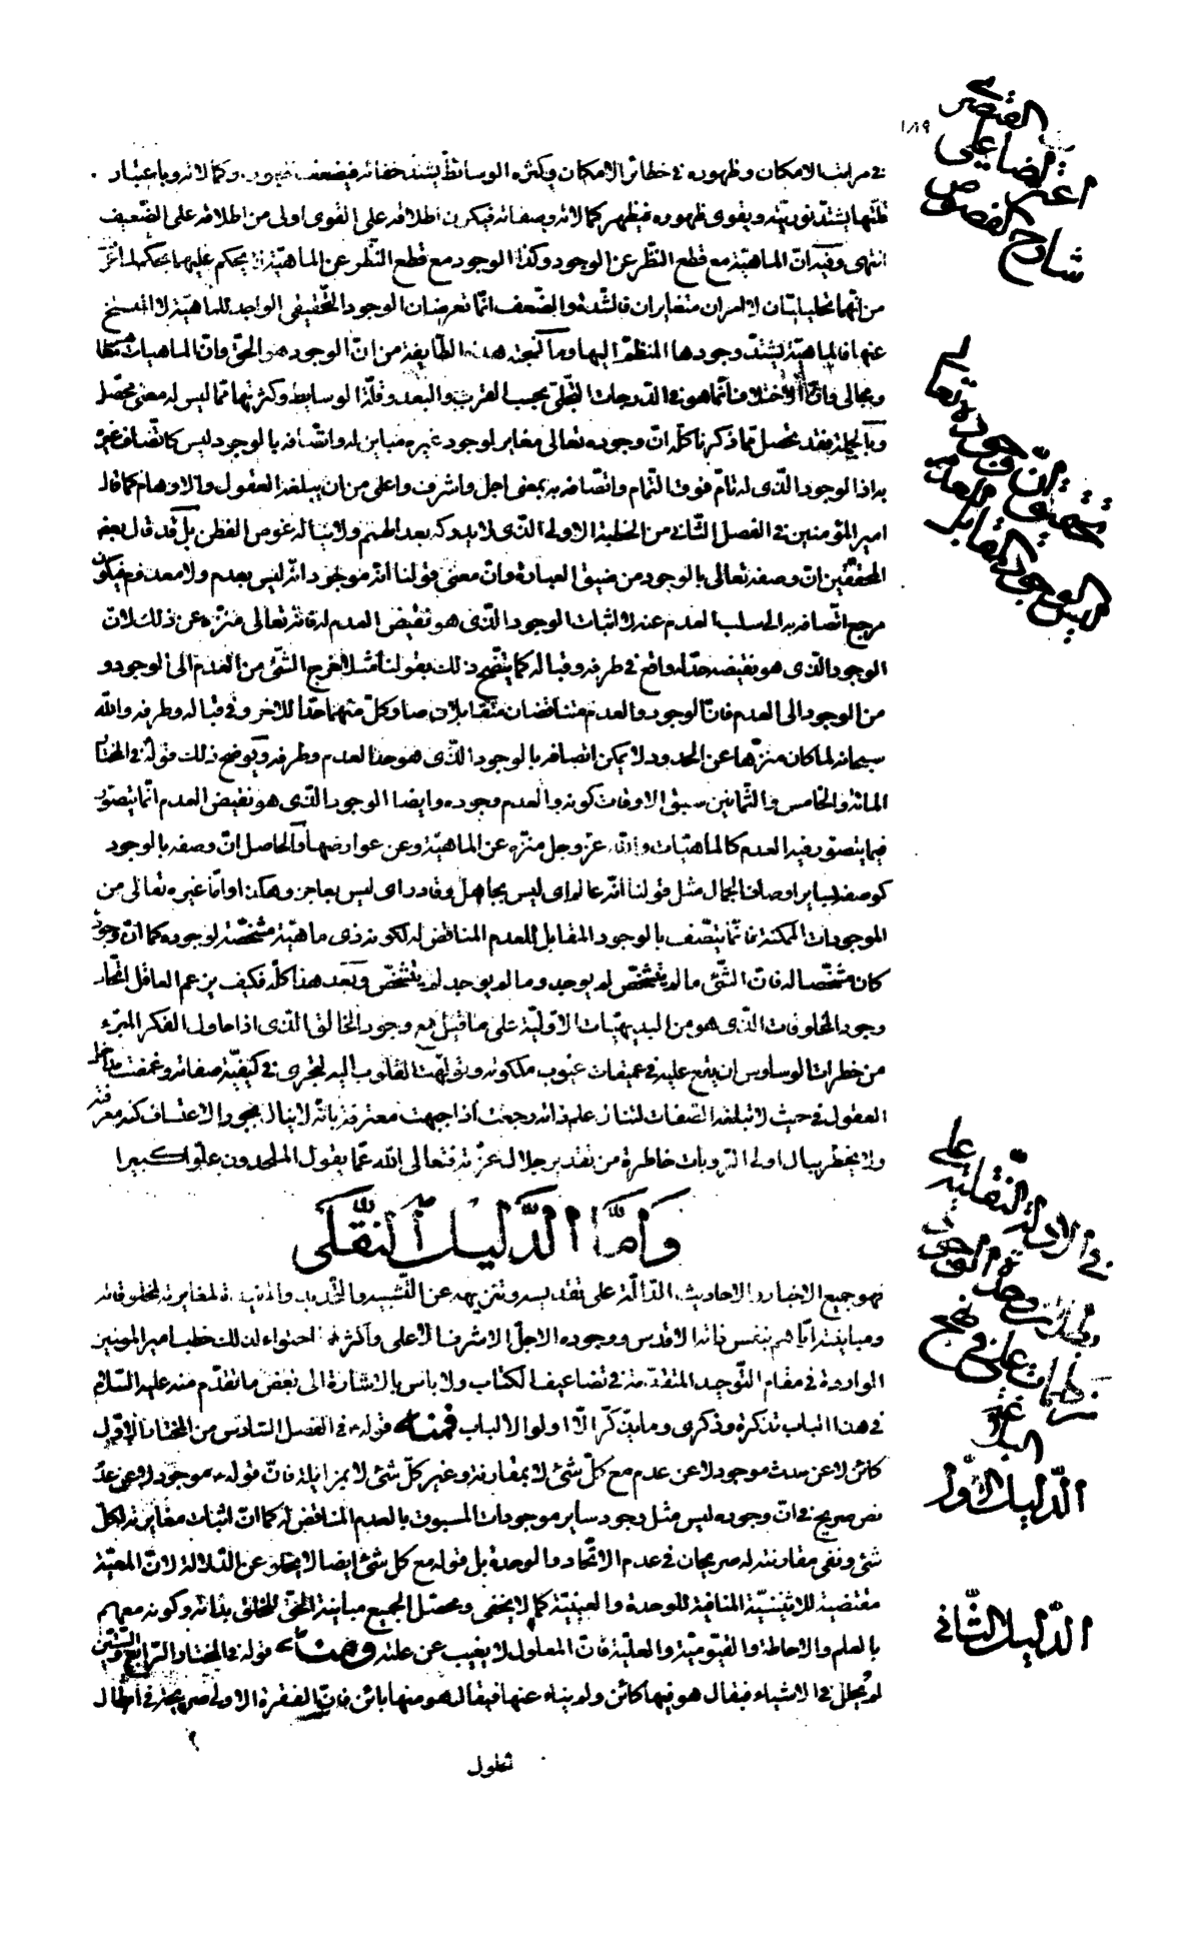 ١٨٩
في مراتب الامكان وظهوره في حظائر الامكان وكثرة الوسائط يشتد خفائه فيضعف ظهوره وكمالاته وباعتبار
قلّتها يشتدّ نوريّته ويقوى ظهوره فيظهر كمالاته وصفاته فيكون اطلاقه على القوى اولى من اطلاقه على الضّعيف
انتهى وفيه انّ الماهيّة مع قطع النّظر عن الوجود وكذا الوجود مع قطع النّظر عن الماهيّة لا يحكم عليهما بحكم لما عرّ
من انّهما تحليليّان لا امران متغايران فالشّدة والضّعف انّما تعرضان الوجود التّحقيقي الواجد للماهيّة لا المنسلخ
عنها فالماهيّة يشتدّ وجودها المنظمّ اليها وما لنتيجة هذه الطّايفة من انّ الوجود هو الحقّ وانّ الماهيات مظا
ومجالى وانّ الاختلاف انّما هو في الدّرجات التّجلّي بحسب القرب والبعد وقلّة الوسايط وكثرتها ممّا ليس له معنى محصّل
وبالجملة فقد تحصل ممّا ذكرنا كلّه انّ وجوده تعالى مغاير لوجود غيره مباين له واتّصافه بالوجود ليس كاتّصاف غيره
به اذ الوجود الّذى له تامّ فوق التّمام واتّصافه به بمعنى اجل واشرف واعلى من ان يبلغه العقول والاوهام كما قال
امير المؤمنين في الفصل الثّاني من الخطبة الاولى الّذى لا يدركه بعد الهمم ولا يناله غوص الفطن بل قد قال بعض
المحقّقين انّ وصفه تعالى بالوجود من ضيق العبارة وانّ معنى قولنا انّه موجود انّه ليس بعدم ولا معدوم فيكون
مرجع اتّصافه به الى سلب العدم عنه لا اثبات الوجود الّذى هو نقيض العدم له فانّه تعالى منزّه عن ذلك لانّ
الوجود الّذى هو نقيضه حدّ له واقع في طرفه وقباله كما يتّضح ذلك بقولنا مثلا خرج الشّئ من العدم الى الوجود و
من الوجود الى العدم فانّ الوجود والعدم متناقضان متقابلان صار كلّ منهما حدّا للاخر وفي قباله وطرفه والله
سبحانه لما كان منزّها عن الحدود لا يمكن اتّصافه بالوجود الّذى هو حد العدم وطرفه ويوضح ذلك قوله في المختا
المائة والخامس والثّمانين سبق الاوقات كونه والعدم وجوده وايضا الوجود الّذى هو نقيض العدم انّما يتصوّر
فيما يتصوّر فيه العدم كالماهيّات والله عزّ وجل منزّه عن الماهيّة وعن عوارضها والحاصل انّ وصفه بالوجود
كوصفه بساير اوصاف الجمال مثل قولنا انّه عالم اى ليس بجاهل وقادر اى ليس بعاجز وهكذا وامّا غيره تعالى من
الموجودات الممكنة فانّما يتّصف بالوجود المقابل للعدم المناقض له لكونه ذى ماهيّة مشخّصة لوجوده كما انّ وجوده
كان مشخّصا له فانّ الشّئ ما لم يتشخّص لم يوجد وما لم يوجد لم يتشخّص وبعد هذا كلّه فكيف يزعم العاقل اتّحاد
وجود المخلوقات الّذى هو من البديهيّات الاوّليّة على ما قيل مع وجود الخالق الّذى اذا حاول الفكر المبرّء
من خطرات الوساوس ان يقع عليه في عميقات غيوب ملكوته وتولّهت القلوب اليه لتجرى في كيفيّة صفاته وغمضت مداخل
العقول في حيث لا تبلغه الصّفات لتناول علم ذاته رجعت اذ اجبهت معترفة بانّه لا ينال بجور الاعتساف كنه معرفته
ولا يخطر ببال اولى الرّويات خاطرة من تقدير جلال عزّته فتعالى الله عمّا يقول الملحدون علوّا كبيرا
وَأمّا الدَّليلُ النَّقلى
فهو جميع الاخبار والاحاديث الدّالّة على تقديسه وتنزيهه عن التّشبيه والتّحديد والمفيدة لمغايرته لمخلوقاته
ومباينته ايّاهم بنفس ذاته الاقدس ووجوده الاجلّ الاشرف الاعلى واكثرها احتواء لذلك خطب امير المؤمنين
الواردة في مقام التّوحيد المتقدّمة في تضاعيف الكتاب ولا باس بالاشارة الى بعض ما تقدّم منه عليه السّلام
في هذا الباب تذكرة وذكرى وما يذّكرّ الّا اولوا الالباب فمنها قوله في الفصل السّادس من المختار الاوّل
كائن لا عن حدث موجود لا عن عدم مع كلّ شئ لا بمقارنة وغير كلّ شئ لا بمزايلة فانّ قوله موجود لا عن عدم
نصّ صريح في انّ وجوده ليس مثل وجود ساير موجودات المسبوق بالعدم المناقض له كما انّ اثبات مغايرته لكلّ
شئ ونفى مقارنته له صريحان في عدم الاتّحاد والوحدة بل قوله مع كل شئ ايضا لا يخلو عن الدّلالة لانّ المعيّة
مقتضية للاثنينيّة المنافية للوحدة والعينيّة كما لا يخفى ومحصّل الجميع مباينة الحقّ للخلق بذاته وكونه معهم
بالعلم والاحاطة والقيّوميّة والعليّة فانّ المعلول لا يغيب عن علته ومنها قوله في المختار الرّابع والستّين
لم يحلل في الاشياء فيقال هو فيها كائن ولم يناء عنها فيقال هو منها بائن فانّ الفقرة الاولى صريحة في ابطال
الحلول
اعتراضا على القيصري
شارح الفصوص
تحقيق انّ وجوده تعالى
ليس الوجود المقابل للعدم
في الادلة النّقلية على
بطلان وحدة الوجود
من خطبات علي في نهج
البلاغة
الدّليل الاوّل
الدّليل الثّاني